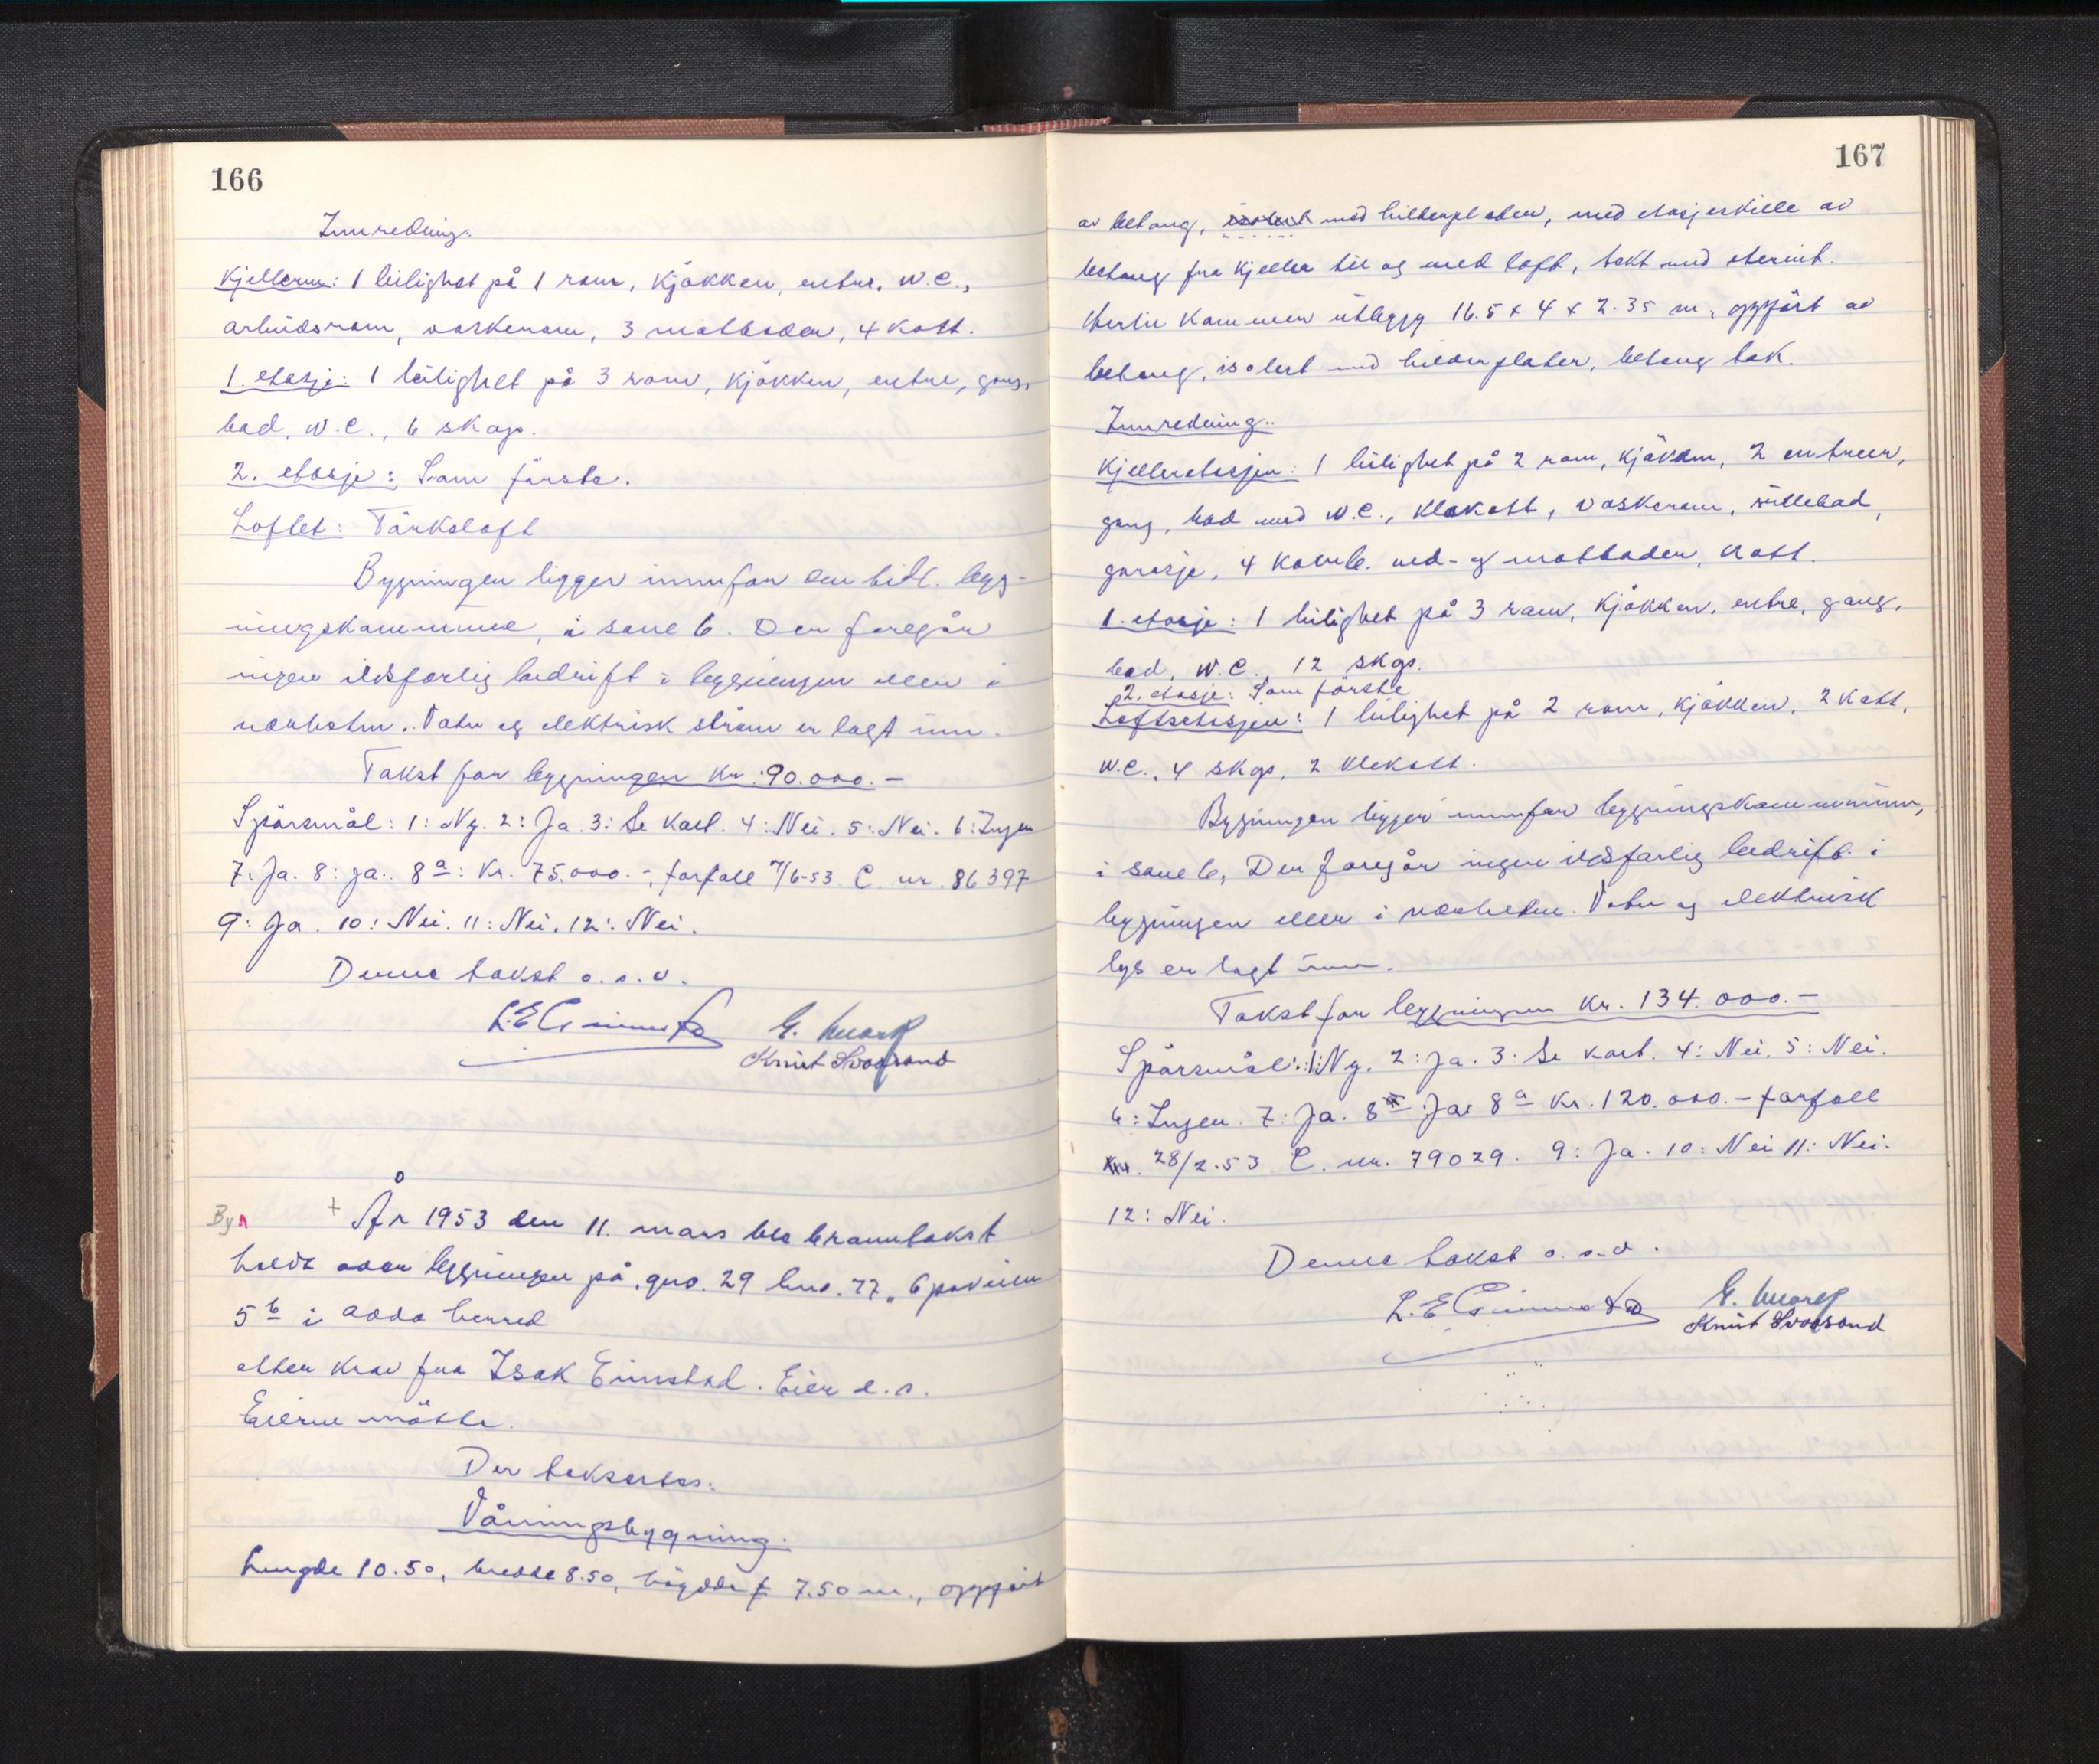 166
Innredning.
Kjelleren: 1 leilighet på 1 rom, kjøkken, entre, W.C.,
arbeidsrom, vaskerom, 3 matboder, 4 kott.
1. etasje: 1 leilighet på 3 rom, kjøkken, entre, gang,
bad, W.C., 6 skap.
2. etasje: Som første.
Loftet: Tørkeloft
Bygningen ligger innenfor den tidl. byg-
ningskommune, i sone 6. Der foregår
ingen ildsfarlig bedrift i bygningen eller i
nærheten. Vatn og elektrisk strøm er lagt inn.
Takst for bygningen kr. 90.000.-
Spørsmål: 1: Ny. 2: Ja. 3: Se kart. 4: Nei. 5: Nei. 6: Ingen
7: Ja. 8: Ja. 8a: Kr. 75.000.-, forfall 7/6-53 C. nr. 86397
9: Ja. 10: Nei. 11: Nei. 12: Nei.
Denne takst o.s.v.
Knut Svoasand
+ År 1953 den 11. mars ble branntakst
holdt over bygningen på gno. 29 bno. 77,
5b i herred
etter krav fra Isak Eimstad. Eier d.s.
Eieren møtte.
Der takseres:
Våningsbygning.
Lengde 10.50, bredde 8.50, høgde 7.50 m., oppført
167
av betong, isolert med bilderplater, med etasjeskille av
betong fra kjeller til og med loft, tekt med eternit.
Hertil kommer utbygg 16.5 x 4 x 2.35 m, oppført av
betong, isolert med plater, betong tak.
Innredning.
Kjelleretasjen: 1 leilighet på 2 rom, kjøkken, 2 entreer,
gang, bad med W.C., klekott, vaskerom, rullebod,
garasje, 4 komb. ved- og matboder, kott.
1. etasje: 1 leilighet på 3 rom, kjøkken, entre, gang,
bad, W.C. 12 skap.
2. etasje: Som første
Loftsetasjen: 1 leilighet på 2 rom, kjøkken, 2 kott,
W.C., 4 skap, 2 klekott.
Bygningen ligger innenfor bygningskommunen,
i sone 6, Der foregår ingen ildsfarlig bedrift i
bygningen eller i nærheten. Vatn og elektrisk
lys er lagt inn.
Takst for bygningen kr. 134.000.-
Spørsmål: 1: Ny. 2: Ja. 3: Se kart. 4: Nei. 5: Nei.
6: Ingen. 7: Ja. 8: Ja: 8a Kr. 120.000.- forfall
28/2-53 C. nr. 79029. 9: Ja. 10: Nei 11: Nei.
12: Nei.
Denne takst o.s.v.
Knut Svoasand